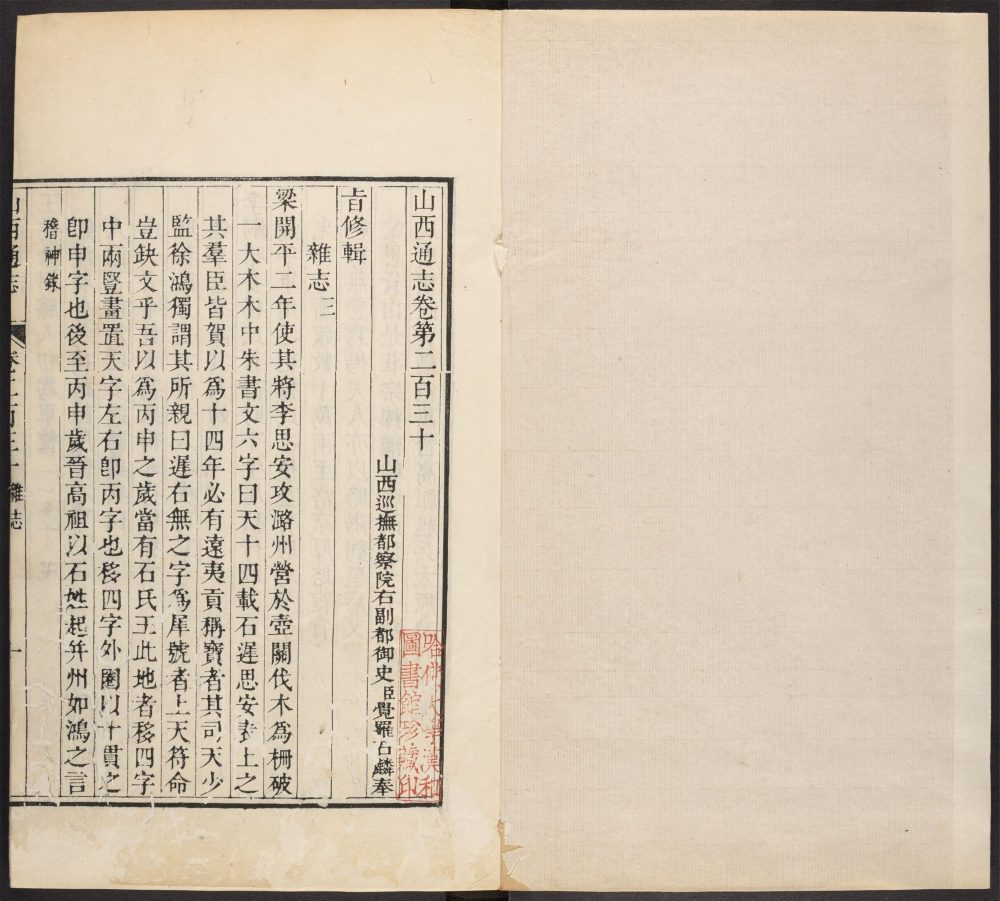 山西通志卷第二百三十
山西巡撫都察院右副都御史臣覺羅石麟奉
旨修輯
雜志三
梁開平二年使其將李思安攻潞州營於壺關伐木為柵破
一大木木中朱書文六字曰天十四載石進思安表上之
其羣臣皆賀以為十四年必有遠夷貢稱寶者其司天少
監徐鴻獨謂其所親曰遲右無之字為年號者上天符命
豈缺文乎吾以為丙申之歲當有石氏王此地者移四字
中兩豎畫置天字左右卽丙字也移四字外圍以十貫之
卽申字也後至丙申歲晉高祖以石姓起并州如鴻之言
稽神錄
山西通志
卷二百三十
雜志
一
哈佛大學漢和
圖書館珍藏印